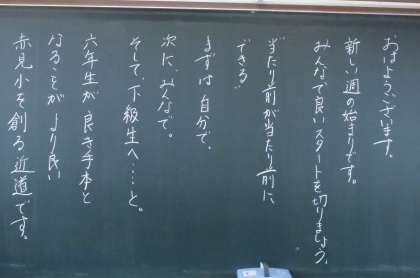 おはようございます。
新しい週の始まりです。
みんなで良いスタートを切りましょう。
当たり前が当たり前に、
できる"
まずは自分で、
次に、みんなで。
そして、下級生へ…と。
六年生が良き手本と
なることがより良い
赤見小を創る近道です。